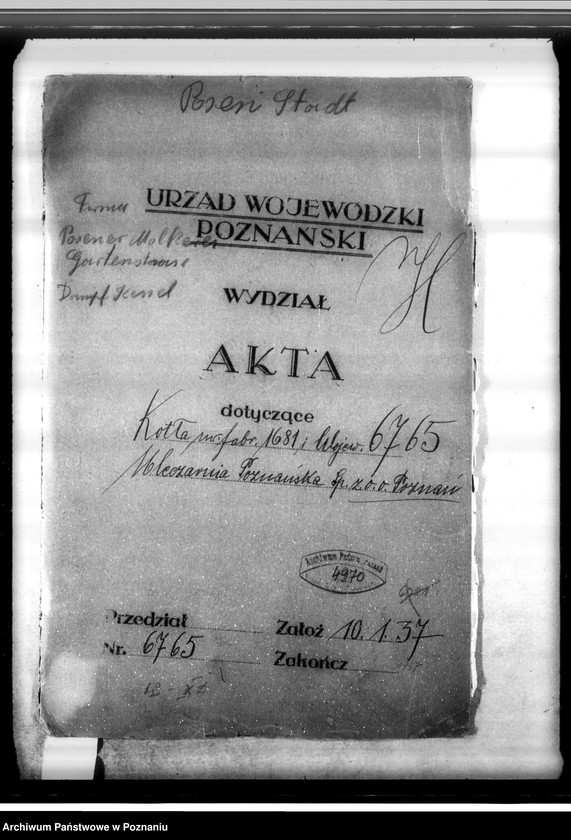 Posen Stadt
Firma
Posener Molkerei
Gartenstrasse
Dampf Kessel
URZĄD WOJEWÓDZKI
POZNAŃSKI
WYDZIAŁ
AKTA
dotyczące
Kotła nr. fabr. 1681 i Wojew. 6765
Mleczarnia Poznańska Sp. z o. o. Poznań
Archiwum Państw. Poznań
4970
Przedział
Założ 10. 1. 37
Nr. 6765
Zakończ
Archiwum Państwowe w Poznaniu